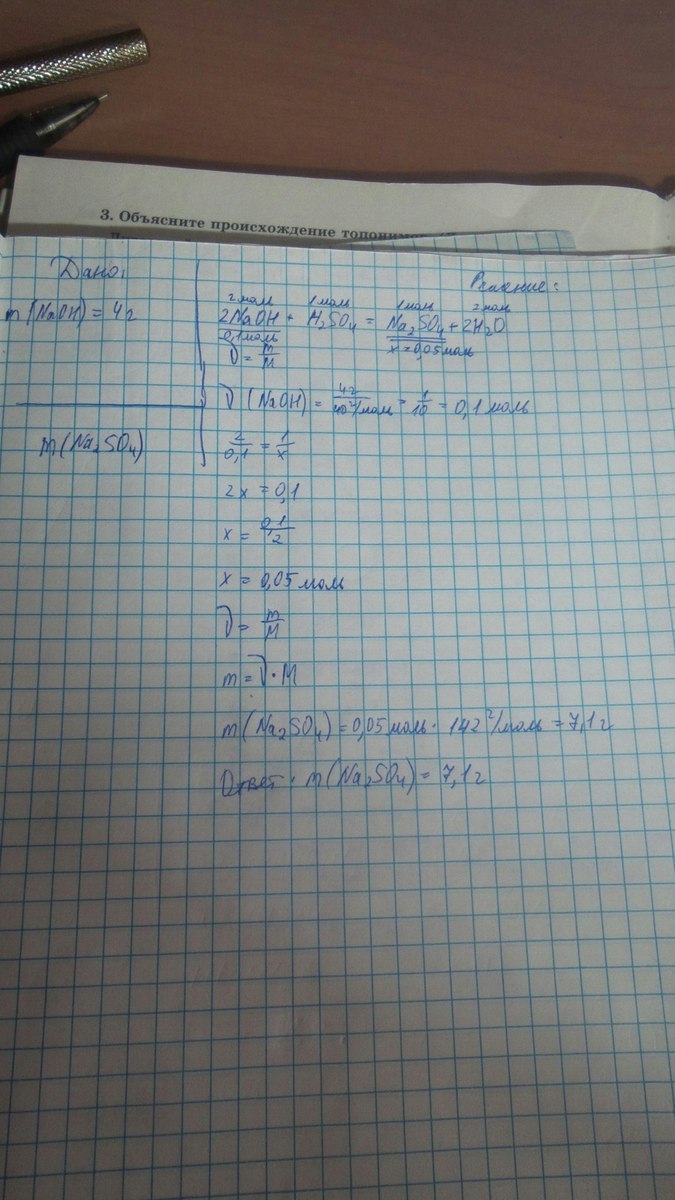 3. Объясните происхождение
Дано:
m(NaOH) = 4г
m(Na₂SO₄)
Решение:
2моль 1моль 1моль 2моль
2NaOH + H₂SO₄ = Na₂SO₄ + 2H₂O
0,1моль x = 0,05моль
ν = m/M
ν (NaOH) = 4г/40г/моль = 1/10 = 0,1 моль
2/0,1 = 1/x
2x = 0,1
x = 0,1/2
x = 0,05 моль
ν = m/M
m = ν · M
m(Na₂SO₄) = 0,05моль · 142г/моль = 7,1г
Ответ: m(Na₂SO₄) = 7,1г